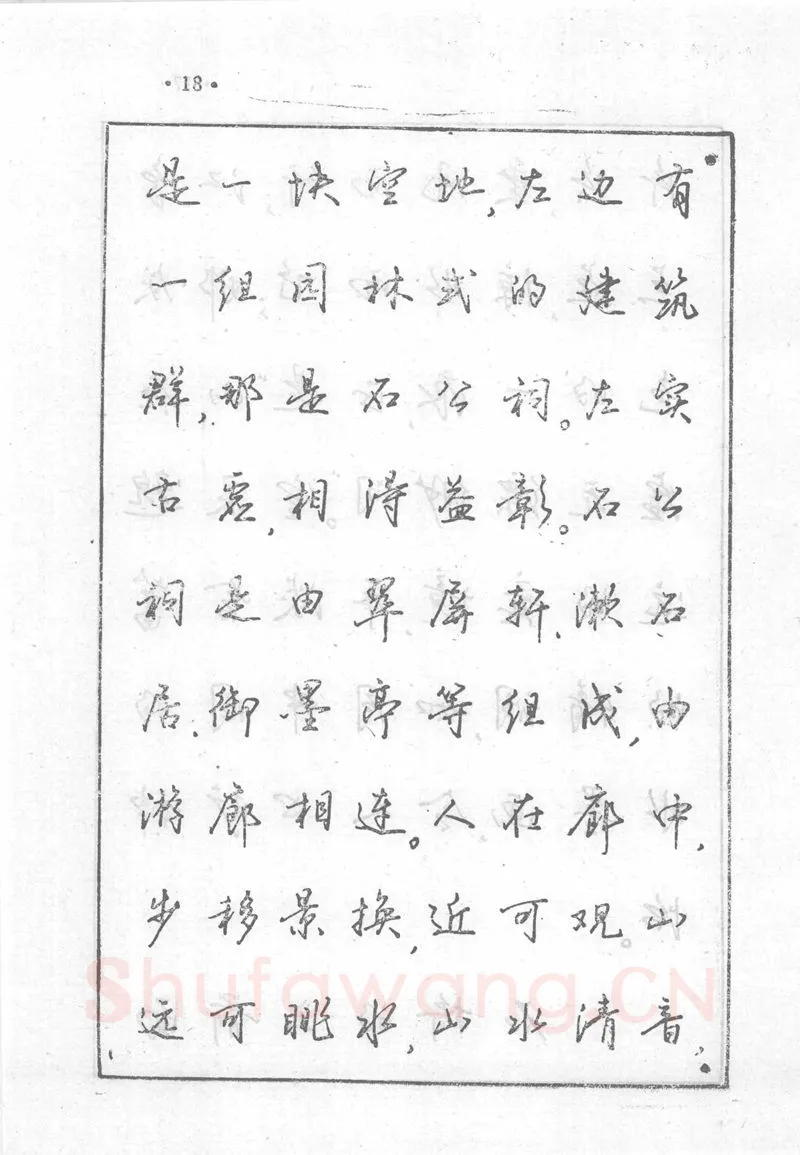 ·18·
是一块空地,左边有
一组园林式的建筑
群,那是石公祠。左实
右虚,相得益彰。石公
祠是由翠屏轩、漱石
居、御墨亭等组成,由
游廊相连。人在廊中,
步移景换,近可观山
远可眺水,山水清音,
Shufawang.CN